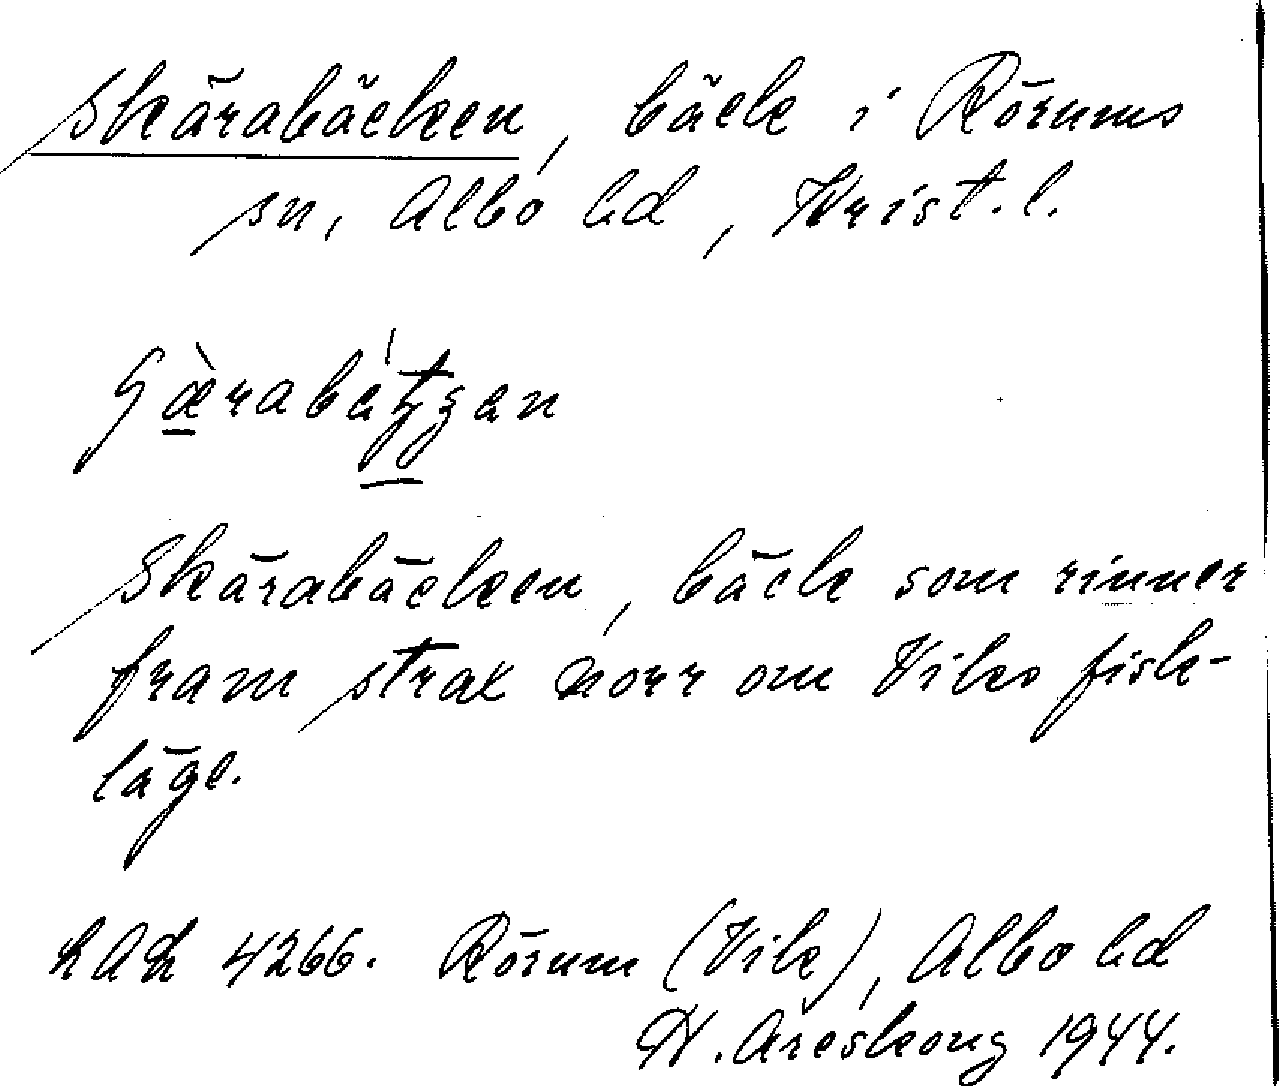 Skärabäcken, bäck i Rörums
sn, Albo hd, Krist.l.
Skärabäcken, bäck som rinner
fram strax norr om Viks fisk-
läge.
LAL 4266. Rörum (Vik), Albo hd
N. Areskoug 1944.